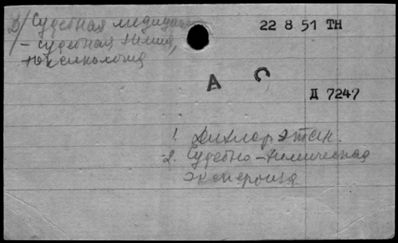 Д/ Судебная медицина
22 8 51 ТН
– судебная химия,
токсикология
А С
Д 7247
1. Дихлорэтан.
2. Судебно-химическая
экспертиза